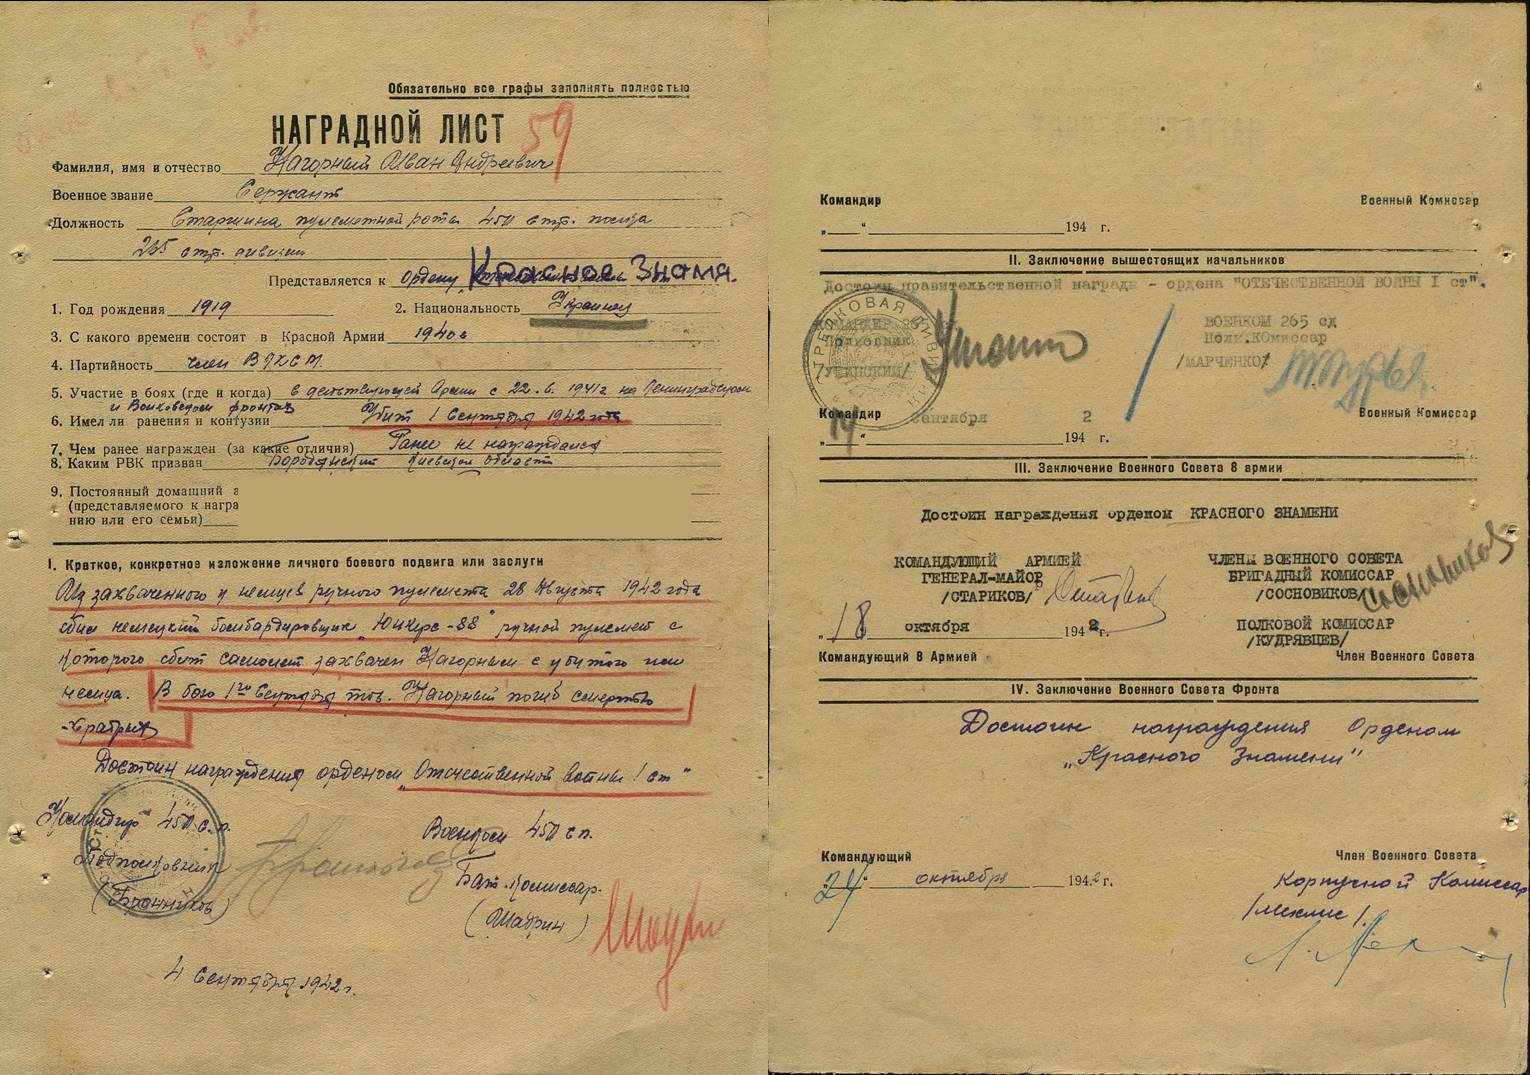 Обязательно все графы заполнять полностью
НАГРАДНОЙ ЛИСТ 59
Фамилия, имя и отчество Нагорный Иван Андреевич
Военное звание Сержант
Должность Старшина пулеметной роты 450 стр. полка
265 стр. дивизии
Представляется к ордену Красное Знамя.
1. Год рождения 1919 2. Национальность Украинец
3. С какого времени состоит в Красной Армии 1940 г
4. Партийность член ВЛКСМ
5. Участие в боях (где и когда) в действующей Армии с 22.6.1941 г на Ленинградском
и Волховском фронтах
6. Имел ли ранения и контузии Убит 1 Сентября 1942 года
7. Чем ранее награжден (за какие отличия) Ранее не награждался
8. Каким РВК призван Бородянский Киевской области
9. Постоянный домашний а
(представляемого к награ
нию или его семьи)
I. Краткое, конкретное изложение личного боевого подвига или заслуги
Из захваченного у немцев ручного пулемета 28 Августа 1942 года
сбил немецкий бомбардировщик "Юнкерс-88" ручной пулемет с
которого сбит самолет захвачен Нагорным с убитого им
немца. В бою 1го Сентября тов. Нагорный погиб смертью
храбрых
Достоин награждения орденом "Отечественной войны 1 ст"
Командир 450 с.п. Военком 450 с п.
Подполковник Бат. Комиссар.
(Бронников) (Шабрин)
4 Сентября 1942 г.
Командир Военный Комиссар
„ “ 194 г.
II. Заключение вышестоящих начальников
Достоин правительственной награды - ордена "ОТЕЧЕСТВЕННОЙ ВОЙНЫ I ст".
КОМАНДИР ВОЕНКОМ 265 сд
Полковник Полк.Комиссар
/УШИНСКИЙ/ /МАРЧЕНКО/
Командир сентября 2 Военный Комиссар
„14“ 194 г.
III. Заключение Военного Совета 8 армии
Достоин награждения орденом КРАСНОГО ЗНАМЕНИ
КОМАНДУЮЩИЙ АРМИЕЙ ЧЛЕНЫ ВОЕННОГО СОВЕТА
ГЕНЕРАЛ-МАЙОР БРИГАДНЫЙ КОМИССАР
/СТАРИКОВ/ /СОСНОВИКОВ/
„18 октября 1942 г. ПОЛКОВОЙ КОМИССАР
/КУДРЯВЦЕВ/
Командующий 8 Армией Член Военного Совета
IV. Заключение Военного Совета Фронта
Достоин награждения Орденом
„Красного Знамени"
Командующий Член Военного Совета
„24 октября 1942 г. Корпусной Комиссар
/Мехлис/.